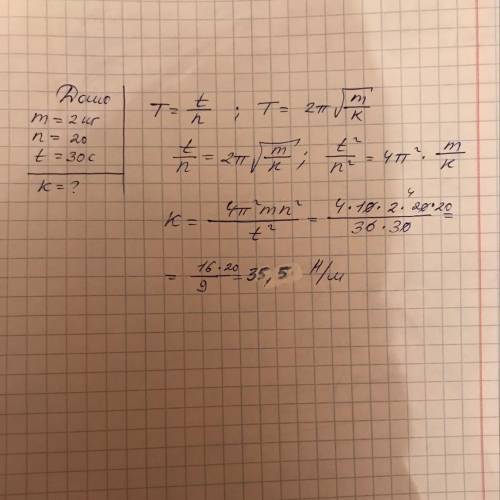 Дано
m = 2 кг
n = 20
t = 30 с
k = ?
T = t/n ; T = 2π√(m/k)
t/n = 2π√(m/k) ; t²/n² = 4π² · m/k
K = 4π²mn²/t² = 4·10·2·20·20/30·30 =
4
= 16·20/9 = 35,5 Н/м